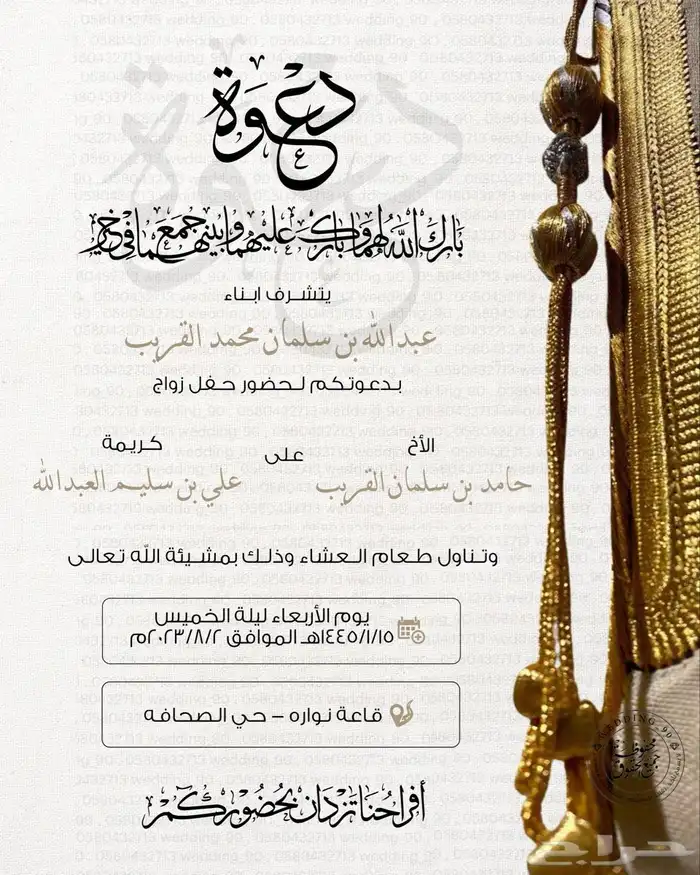 دعوة
بارك الله لهما وبارك عليهما وجمع بينهما في خير
يتشرف ابناء
عبدالله بن سلمان محمد القريب
بدعوتكم لحضور حفل زواج
الأخ على كريمة
حامد بن سلمان القريب علي بن سليم العبدالله
وتناول طعام العشاء وذلك بمشيئة الله تعالى
يوم الأربعاء ليلة الخميس
١٤٤٥/١/١٥هـ الموافق ٢٠٢٣/٨/٢م
قاعة نواره – حي الصحافه
أفراحنا تزدان بحضوركم
WEDDING_90
محفوظة
جميع الحقوق
حراج
0580432713 wedding_90